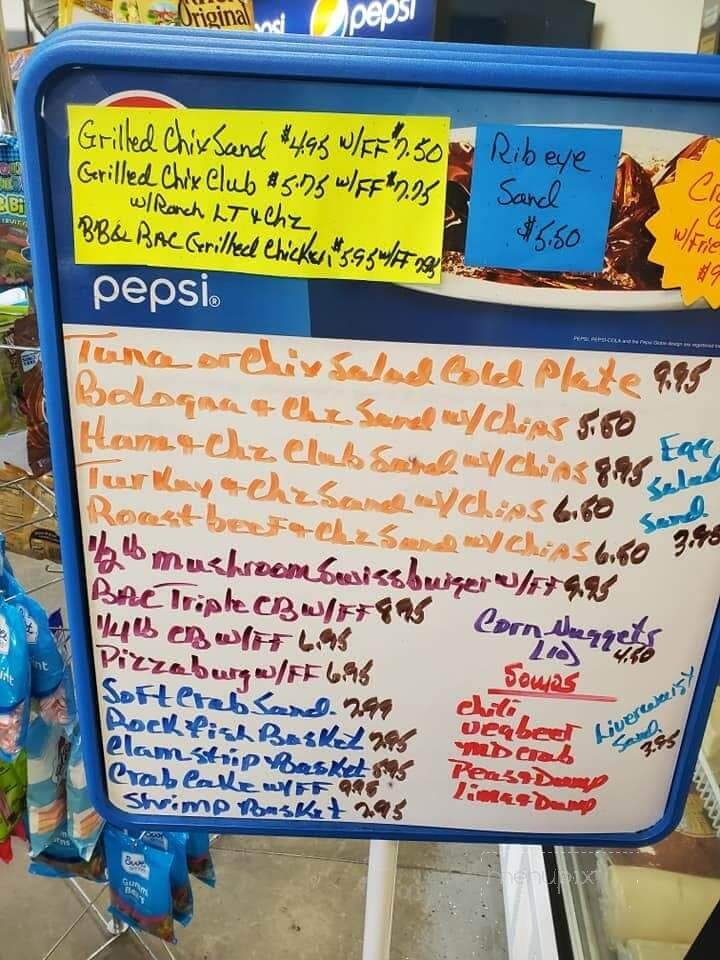 Original
pepsi
pepsi
Grilled Chix Sand $4.95 w/FF $7.50
Grilled Chix Club $5.75 w/FF $7.75
w/Ranch LT & Chz
BB& BAC Grilled Chicken $5.95 w/FF
Rib eye
Sand
$5.50
w/Frie
pepsi
Tuna or Chix Salad Cold Plate 9.95
Bologna + Chz Sand w/ Chips 5.50
Ham + Chz Club Sand w/ Chips 8.95
Turkey + Chz Sand w/ Chips 6.50
Roast beef + Chz Sand w/ Chips 6.50
Egg
Salad
Sand
1/2 lb mushroom Swiss burger w/FF 9.95
BAC Triple CB w/FF 8.95
1/4 lb CB w/FF 6.95
Pizzaburg w/FF 6.95
Soft Crab Sand. 7.99
Rockfish Basket 7.95
Clam strip Basket 8.95
Crab Cake w/FF 9.95
Shrimp Basket 7.95
Corn Nuggets
(10) 4.50
Soups
Chili
Vegbeef
MD Crab
Peas + Dump
Lima + Dump
Liverwurst
Sand. 3.95
menupix